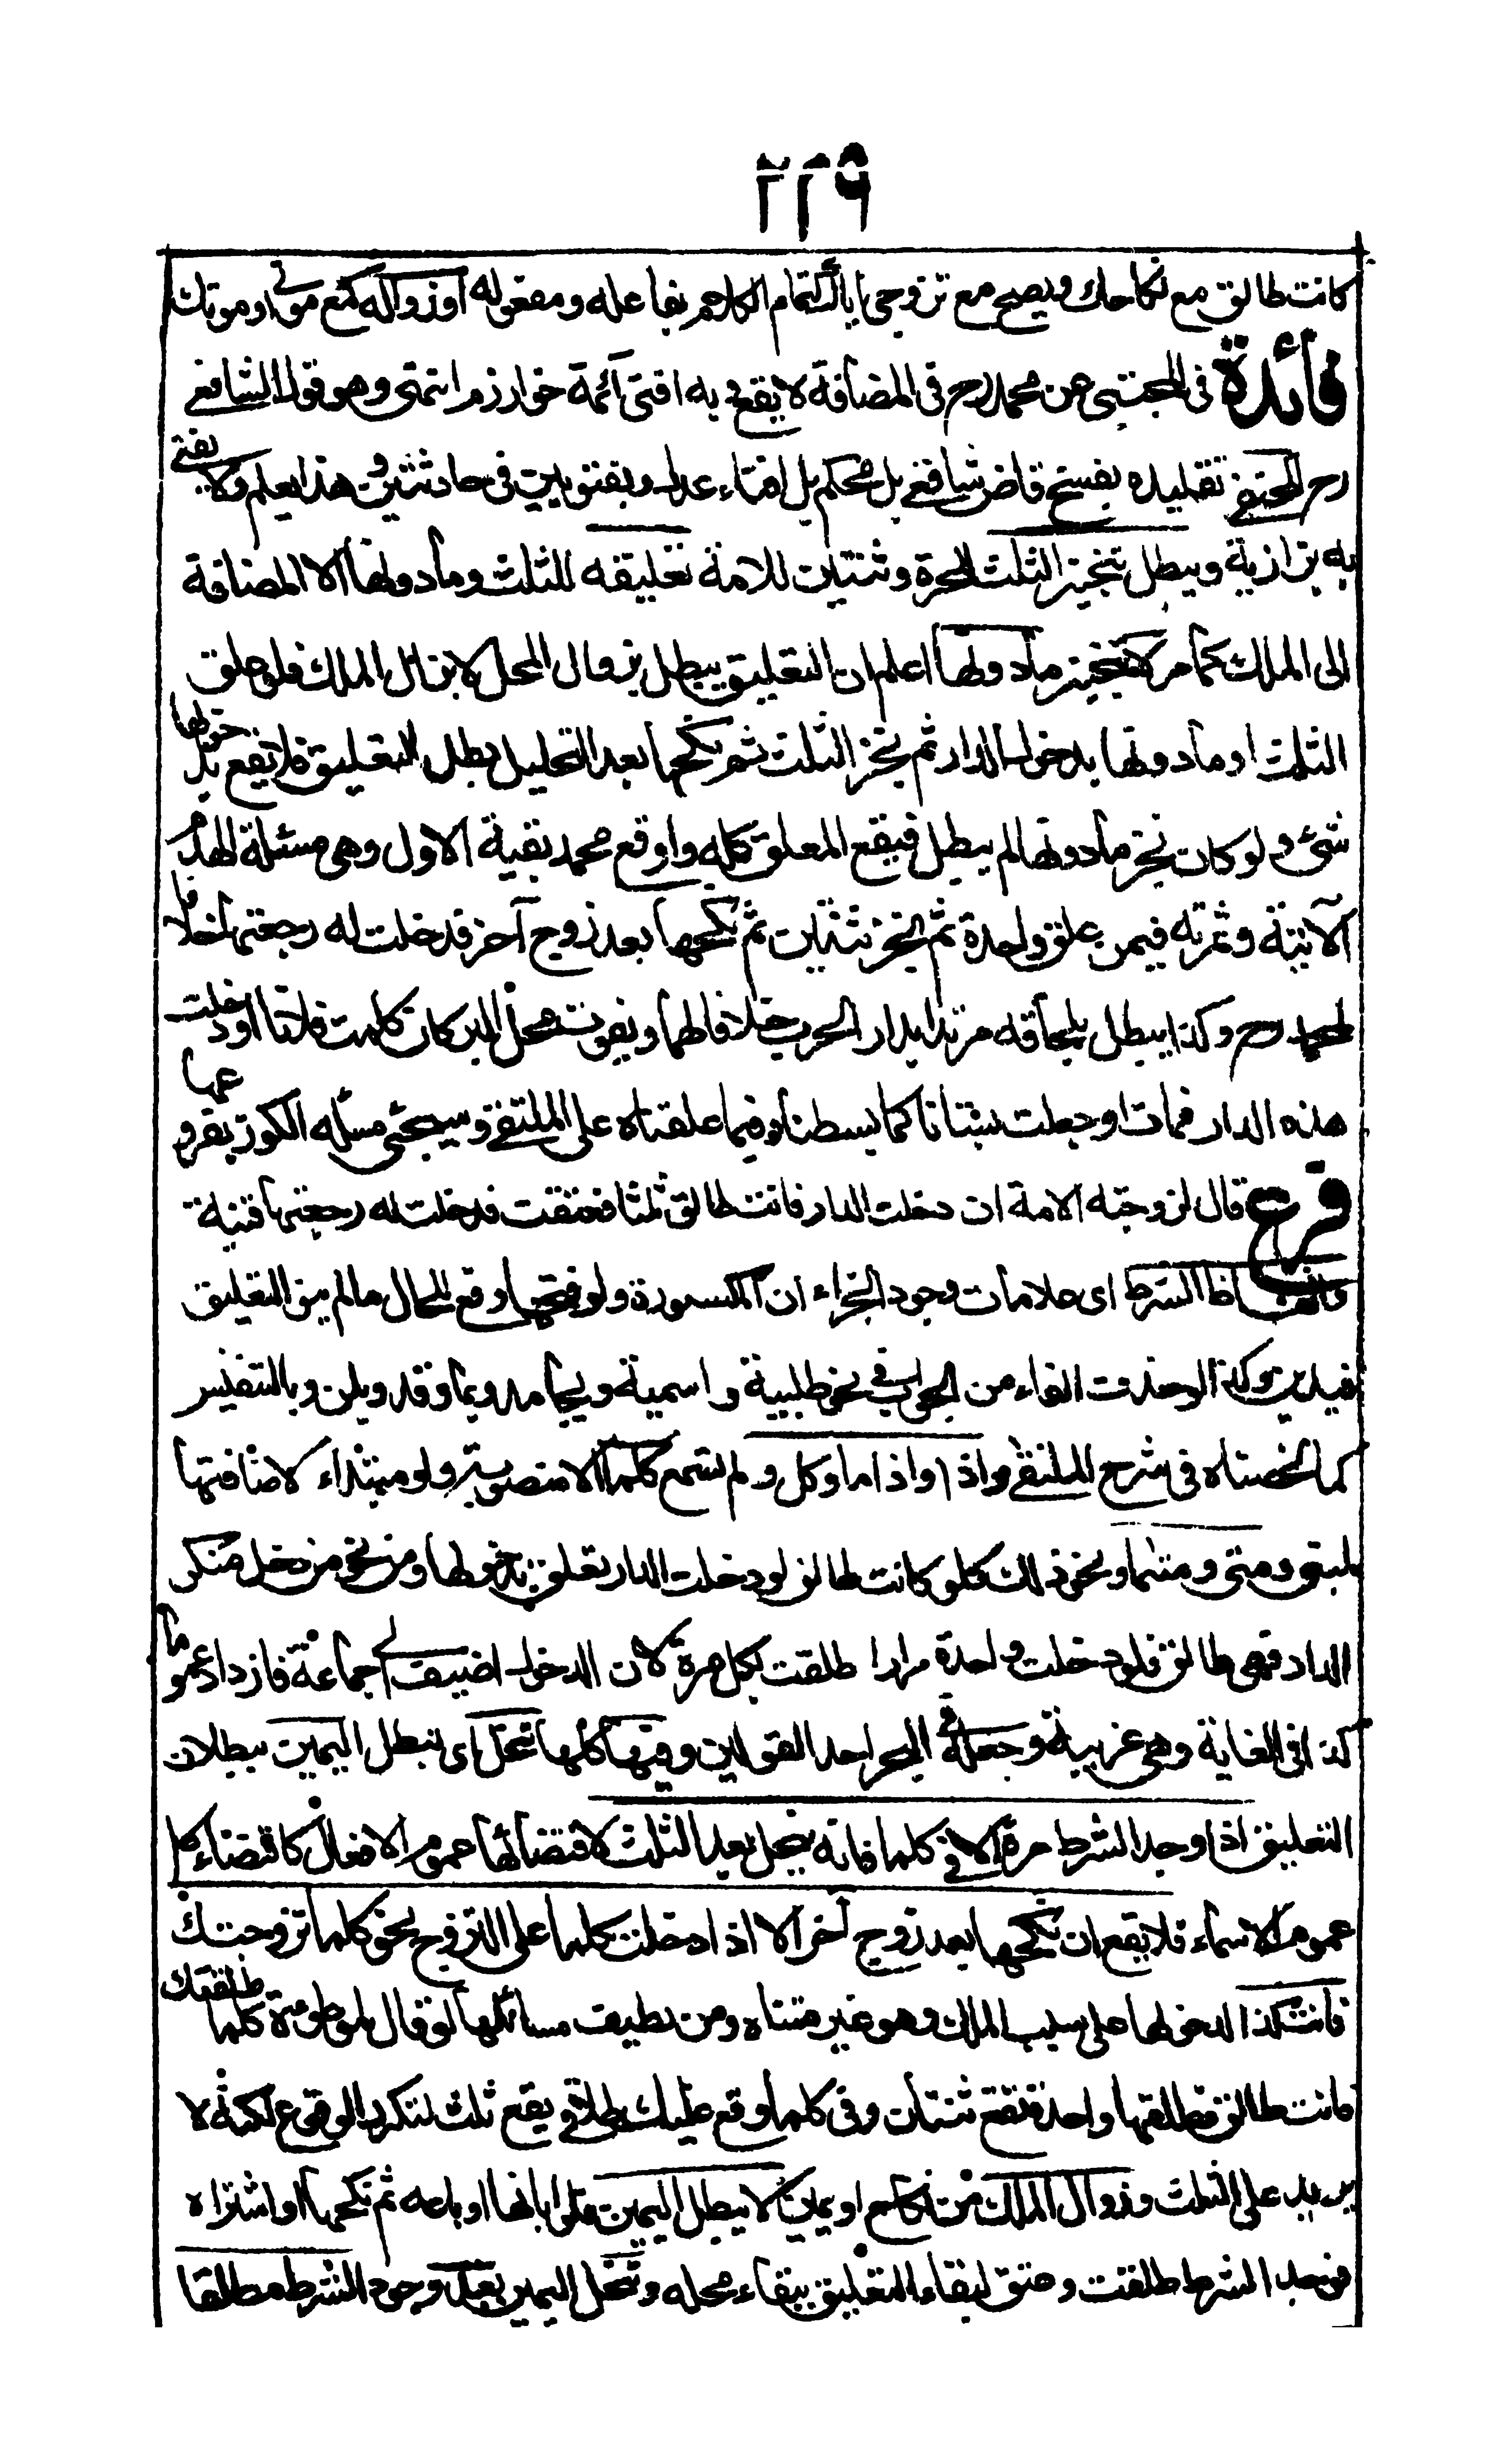 ٢٢٩
كانت طالق مع نكاحك ويصح مع تزوجى اياك لتمام الكلام بفاعله ومفعوله او زواله كمع موتى او موتك
فائدة فى المجتبى عن محمد رح فى المضافة لا يقع وبه افتى ائمة خوارزم انتهى وهو قول الشافعى
رح وللحنفى تقليده بفسخ قاض شافعى بل محكم بل افتاء عدل وبفتويين فى حادثتين وهذا يعلم ولا يفتى
به بزازية ويبطل تنجيز الثلث للحرة وثنتين للامة تعليقه للثلث وما دونها الا المضافة
الى الملك كما مر لا تنجيز ما دونها اعلم ان التعليق يبطل بزوال المحل لا بزوال الملك فلو علق
الثلث او ما دونها بدخول الدار ثم نجز الثلث ثم نكحها بعد التحليل بطل التعليق فلا يقع بدخولها
شئ ولو كان نجز ما دونها لم يبطل فيقع المعلق كله واوقع محمد بقية الاول وهى مسئلة الهدم
الآتية وثمرته فيمن علق واحدة ثم نجز ثنتين ثم نكحها بعد زوج آخر فدخلت له رجعتها خلافا
لمحمد رح وكذا يبطل بلحاقه مرتدا بدار الحرب خلافا لهما وبفوت محل البر كان كلمت فلانا او دخلت
هذه الدار فمات او جعلت بستانا كما بسطناه فيما علقناه على الملتقى وسيجئ مسألة الكوز بفروعها
فرع قال لزوجته الامة ان دخلت الدار فانت طالق ثلثا فعتقت فدخلت له رجعتها قنية
والفاظ الشرط اى علامات وجود الجزاء ان المكسورة ولو فتحها وقع للحال ما لم ينو التعليق
فيدين وكذا لو حذف الفاء من الجواب فى نحو طلبية واسمية وبجامد وبما وقد وبلن وبالتنفيس
كما لخصناه فى شرح الملتقى واذا واذا ما وكل ولم تسمع كلما الا منصوبة ولو مبتداء لاضافتها
لمبنى ومتى ومتى ما ونحو ذلك كلو كانت طالق لو دخلت الدار تعلق بدخولها ومن نحو من دخل منكن
الدار فهى طالق فلو دخلت واحدة مرارا طلقت بكل مرة لان الدخول اضيف الى جماعة فازداد عموما
كذا فى الغاية وهى غريبة وجعله فى البحر احد القولين وفيها كلها تنحل اى تبطل اليمين ببطلان
التعليق اذا وجد الشرط مرة الا فى كلما فانه ينحل بعد الثلث لاقتضائها عموم الافعال كاقتضاء كل
عموم الاسماء فلا يقع ان نكحها بعد زوج آخر الا اذا دخلت كلما على التزوج نحو كلما تزوجتك
فانت كذا لدخولها على سبب الملك وهو غير متناه ومن لطيف مسائلها لو قال لموطوءة كلما طلقتك
فانت طالق فطلقها واحدة تقع ثنتان وفى كلما وقع عليك طلاقى يقع ثلث لتكرر الوقوع لكنه لا
يزيد على الثلث وزوال الملك من نكاح او يمين لا يبطل اليمين فلو ابانها او باعه ثم نكحها او اشتراه
فوجد الشرط طلقت وعتق لبقاء التعليق ببقاء محله وتنحل اليمين بعد وجود الشرط مطلقا